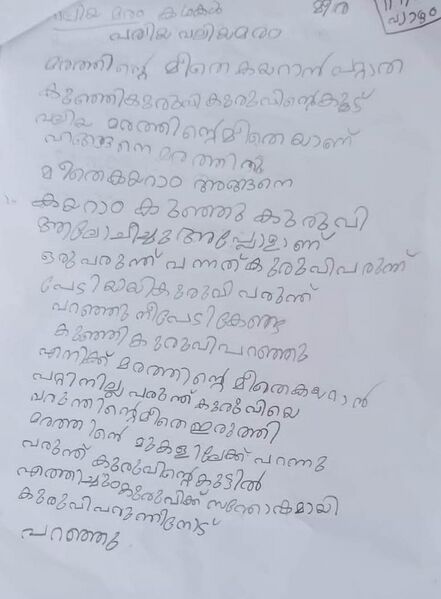 വലിയ മരം കഥകൾ മീര
പതിയ വലിയമരം
മരത്തിന്റെ മീതെ കയറാൻ പറ്റാത
കുഞ്ഞികുരുവി കുരുവിന്റെകൂട്
വലിയ മരത്തിന്റെമീതെയാണ്
എങ്ങനെ മരത്തിന്റ
മീതെകയറാം അങ്ങനെ
കയറാം കുഞ്ഞു കുരുവി
ആലോചിച്ചു അപ്പോളാണ്
ഒരുപരുന്ത് വന്നത് കുരുവിപരുന്ത്
പേടിയായികുരുവി പരുന്ത്
പറഞ്ഞു നീപേടികേണ്ട
കുഞ്ഞികുരുവിപറഞ്ഞു
എനിക്ക് മരത്തിന്റെ മീതെകയറാൻ
പറ്റിന്നില്ല പരുന്ത് കുരുവിയെ
പരുന്തിന്റെമീതെഇരുത്തി
മരത്തിന്റെ മുകളിലേക്ക് പറന്നു
പരുന്ത് കുരുവിന്റെകൂട്ടിൽ
എത്തിച്ചുകുരുവിക്ക് സന്തോഷമായി
കുരുവിപരുന്തിനോട്
പറഞ്ഞു